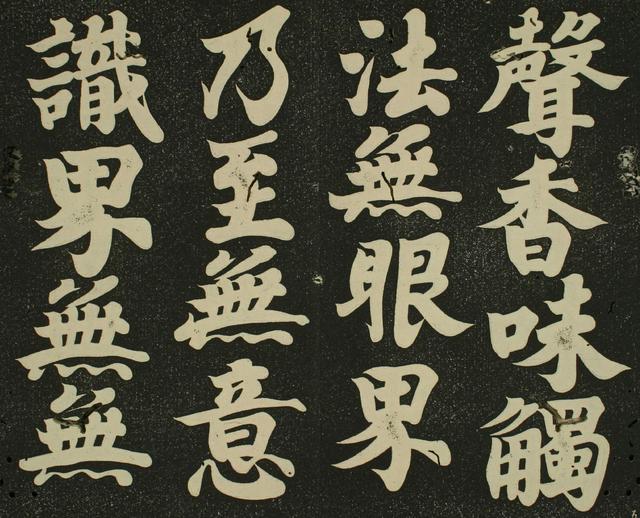 聲香味觸
法無眼界
乃至無意
識界無無